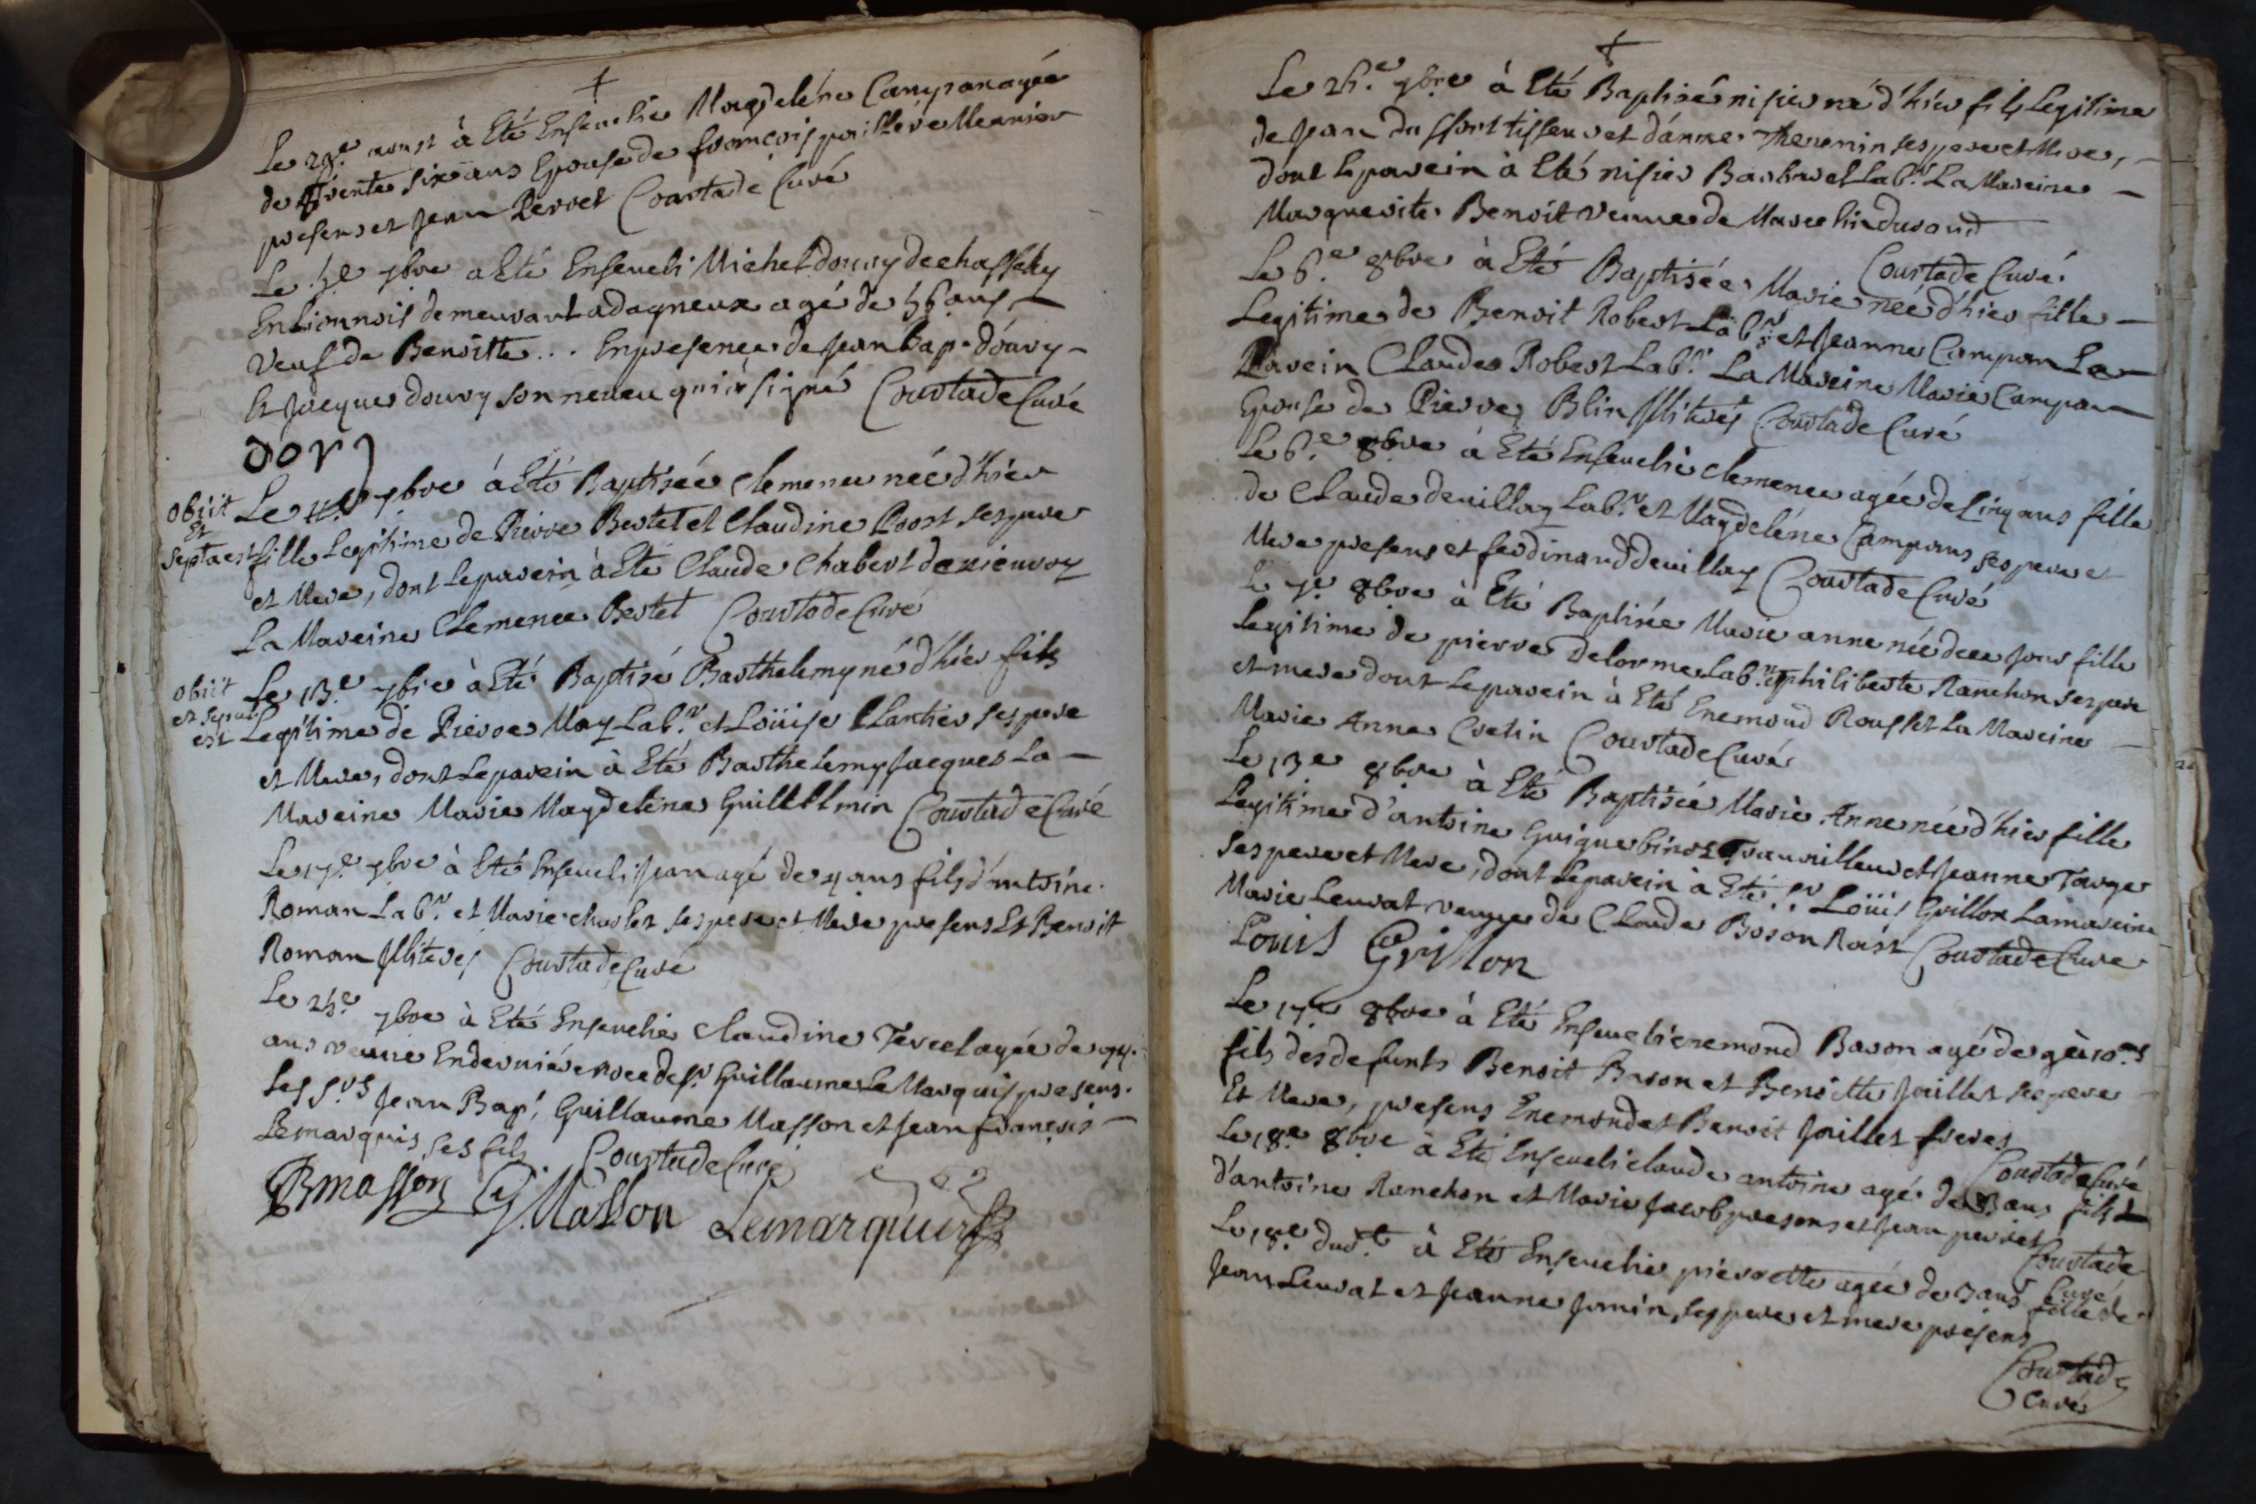 †
Le 29.e aoust à Eté Enseuelie Magdeléne Campan agée
de trente six ans Epouse de françois paillere Meunier
presens et Jean Perret Courtade Curé
Le 5.e 7bre a Eté Enseueli Michel doury de chasselay
En Lionnois demeurant a dagneux agé de 56 ans —
Veuf de Benoitte ... En presence de Jean Bap. d'oury —
Et Jacques doury son neueu qui à signé Courtade Curé
dory
obiit
Et
septa est
Le 7bre à Eté Baptisée Clemence née d'hier
fille Legitime de Pierre Bertet et Claudine Poost ses pere
et Mere, dont le parein à Eté Claude Chabert de nieuroz
La Mareine Clemence Bertet Courtade Curé
obiit
et sepult
est
Le 13.e 7bre à Eté Baptisé Barthelemy né d'hier fils
Legitime de Pierre May Lab.r et Loüise Clartier ses pere
et Mere, dont Le parein à Eté Barthelemy Jacques La —
Mareine Marie Magdeléne Guillelmin Courtade Curé
Le 17.e 7bre à Eté Enseueli Jean agé de 4 ans fils d'antoine
Roman Lab.r et Marie charlet ses pere et Mere presens Et Benoit
Roman Illiteres Courtade Curé
Le 25.e 7bre à Eté Enseuelie Claudine Tercet agée de 74.
ans veuue En derniére noce de s.r Guillaume Le Marquis presens.
Les s.rs Jean Bap.t Guillaume Masson et Jean françois —
Lemarquis ses fils Courtade Curé
JB masson G. Masson Lemarquis
†
Le 26.e 7bre à Eté Baptisé nisier né d'hier fils Legitime
de Jean du ssort tisseur et d'anne Thevenin ses pere et Mere, —
dont Le parein à Eté nisier Barbaret Lab.r La Mareine —
Marguerite Benoit veuue de Marcelin durand
Courtade Curé
Le 6.e 8bre à Eté Baptisée Marie née d'hier fille —
Legitime de Benoit Robert Lab.r et Jeanne Campan Le —
Parein Claude Robert Lab.r La Mareine Marie Campan —
Epouse de Pierre Blin Illiterés Courtade Curé
Le 6.e 8bre à Eté Enseuelie Clemence agée de Cinq ans fille
de Claude deuillay Lab.r et Magdeléne Campans ses pere et
Mere presens et ferdinand deuillay Courtade Curé
Le 7.e 8bre à Eté Baptisée Marie anne née de ce Jour fille
Legitime de pierre Delorme Lab.r et philiberte Ranchon ses pere
et mere dont Le parein à Eté Enemond Rousset La Mareine —
Marie Anne Cretin Courtade Curé
Le 13.e 8bre à Eté Baptisée Marie Anne née d'hier fille
Legitime d'antoine Guiguebinot Trauailleur et Jeanne Targe
Ses pere et Mere, dont Le parein à Eté s.r Loüis Grillon La mareine
Marie Leurat veuue de Claude Boson Roást Courtade Cure
Louis Grillon
Le 17.e 8bre à Eté Enseueli enemond Baron agé de 10.ns
fils des defunts Benoit Baron et Benoitte Jaillet ses pere —
Et Mere, presens Enemond et Benoit Jaillet freres
Courtade Curé
Le 18.e 8bre à Eté Enseueli claude antoine agé de 3 ans fils
d'antoine Ranchon et Marie Jacob presens et Jean perret
Courtade
Curé
Le 18.e dud.t à Eté Enseuelie pierrette agée de 3 ans fille de
Jean Leurat et Jeanne Jomin, ses pere et mere presens
Courtade
Curé